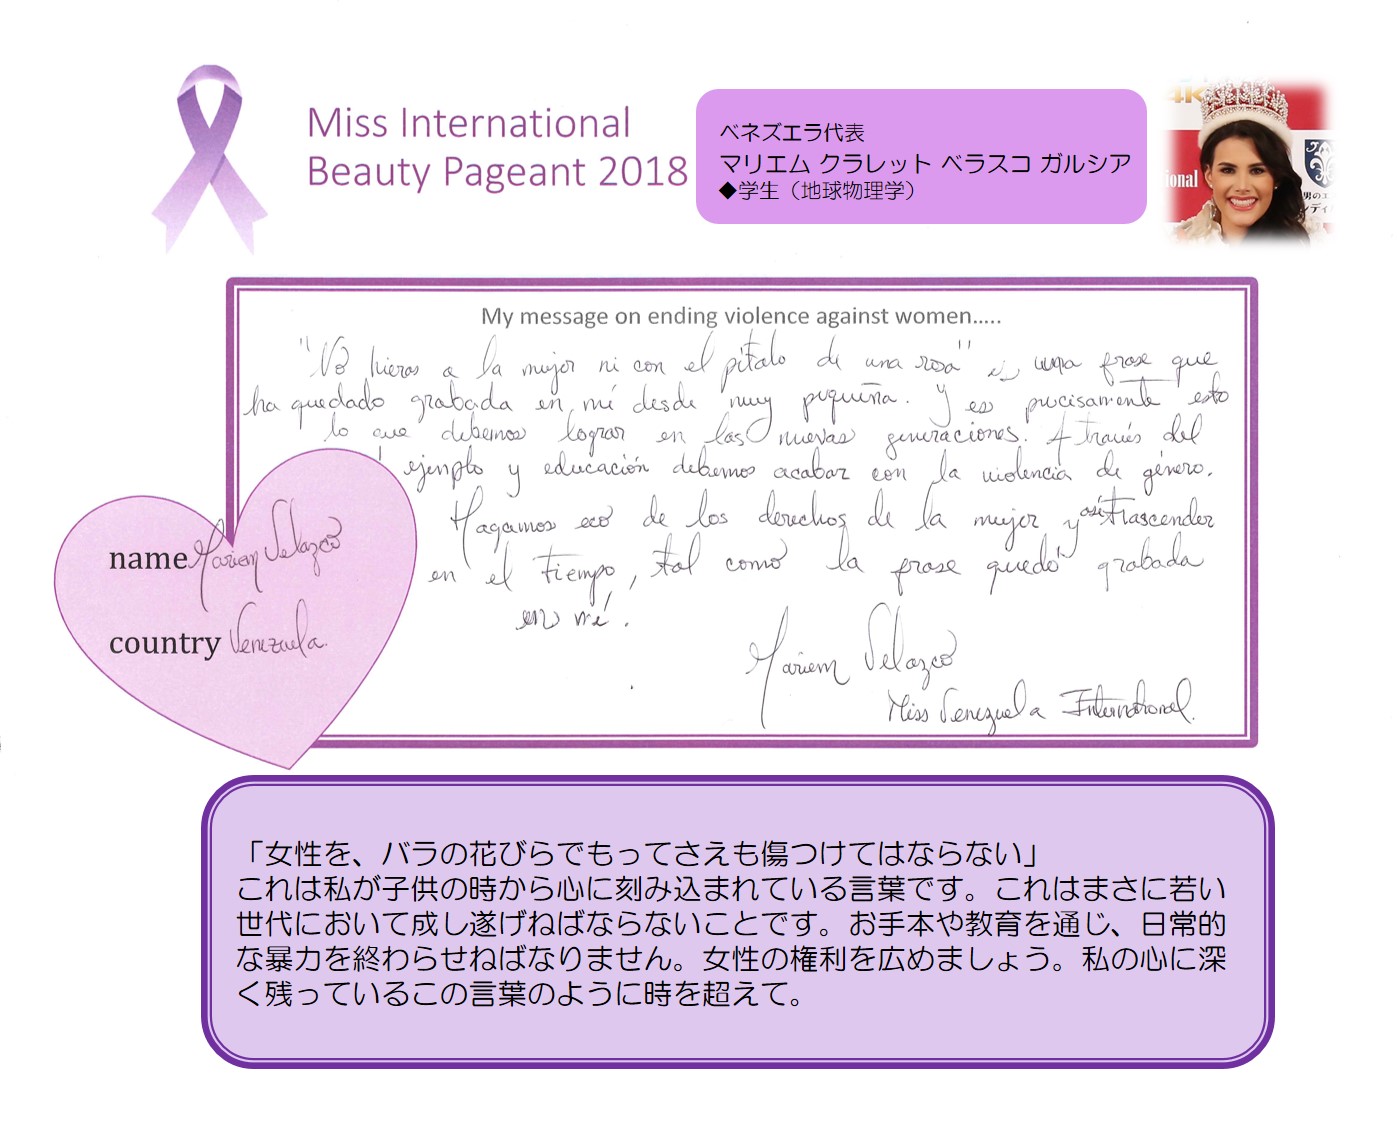 Miss International
Beauty Pageant 2018
ベネズエラ代表
マリエム クラレット ベラスコ ガルシア
◆学生（地球物理学）
4K
ional
男のエ
ンディ
My message on ending violence against women.....
"No hieras a la mujer ni con el pétalo de una rosa" es una frase que
ha quedado grabada en mí desde muy pequeña. Y es precisamente esto
lo que debemos lograr en las nuevas generaciones. A través del
ejemplo y educación debemos acabar con la violencia de género.
Hagamos eco de los derechos de la mujer y así trascender
en el tiempo, tal como la frase quedó grabada
en mí.
Mariem Velazco
Miss Venezuela International.
name Mariem Velazco
country Venezuela.
「女性を、バラの花びらでもってさえも傷つけてはならない」
これは私が子供の時から心に刻み込まれている言葉です。これはまさに若い
世代において成し遂げねばならないことです。お手本や教育を通じ、日常的
な暴力を終わらせねばなりません。女性の権利を広めましょう。私の心に深
く残っているこの言葉のように時を超えて。